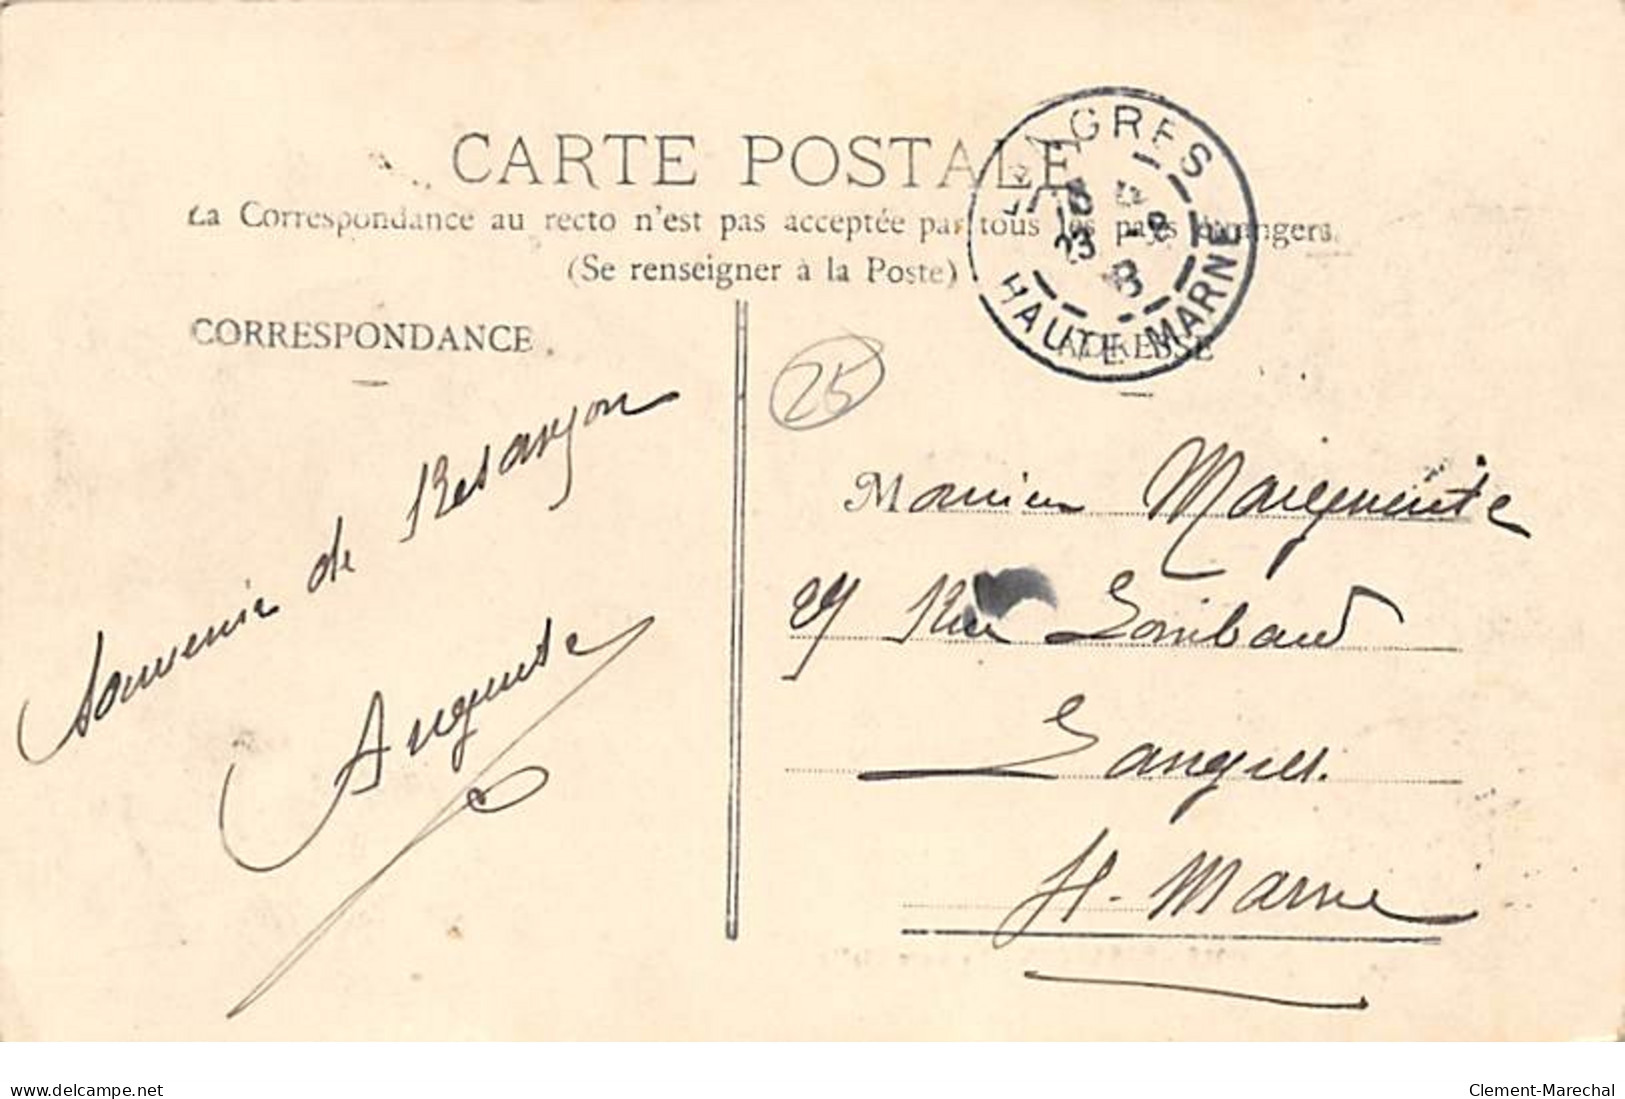 CARTE POSTALE
La Correspondance au recto n'est pas acceptée par tous les pays étrangers.
(Se renseigner à la Poste)
LANGRES
23 -8
8
HAUTE-MARNE
CORRESPONDANCE
ADRESSE
25
Souvenir de Besançon
Auguste
Monsieur Marguerite
29 Rue Lombard
Langres.
H-Marne
www.delcampe.net
Clement-Marechal